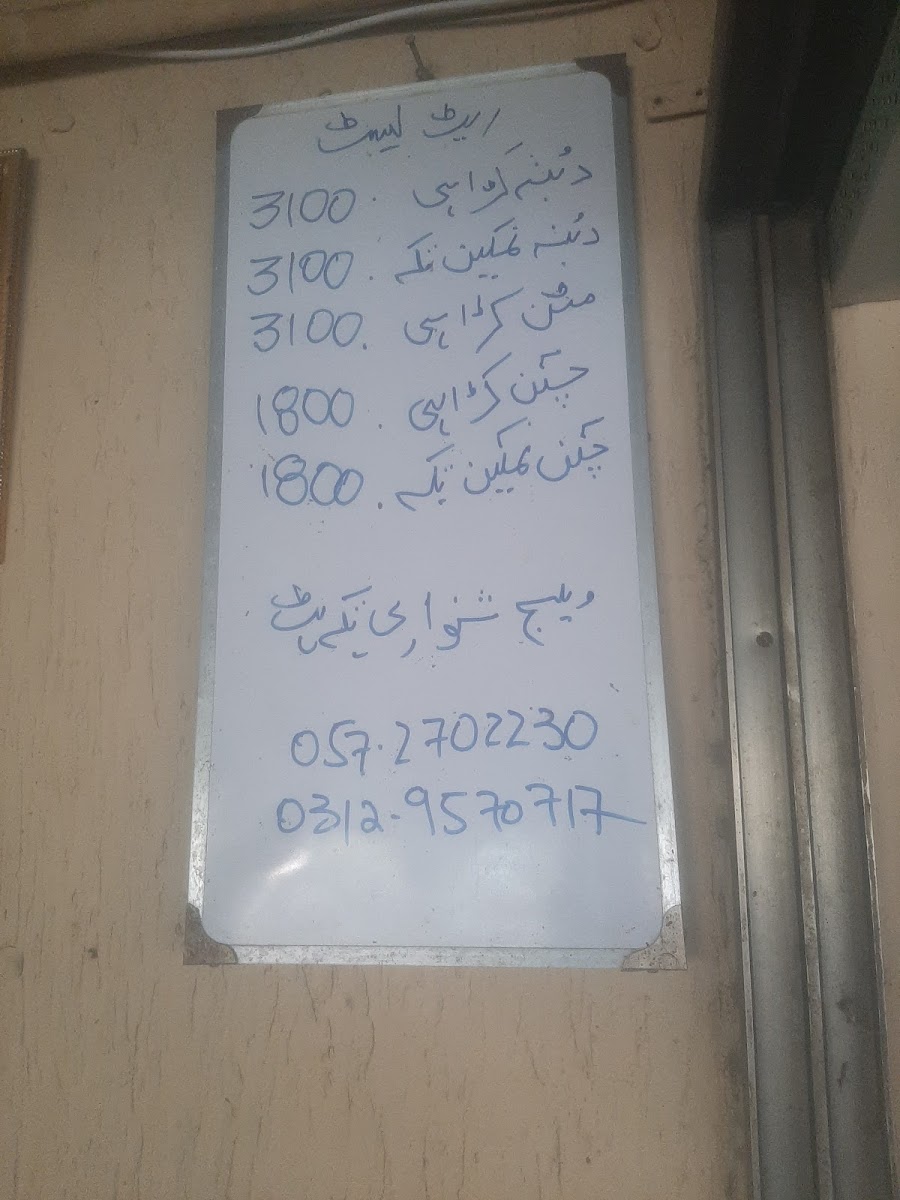 ریٹ لیسٹ
دُنبہ کڑاہی . 3100
دُنبہ نمکین تکہ . 3100
مٹن کڑاہی . 3100
چکن کڑاہی . 1800
چکن نمکین تکہ . 1800
ویلیج شنواری تکہ ہٹ
057.2702230
0312-9570717